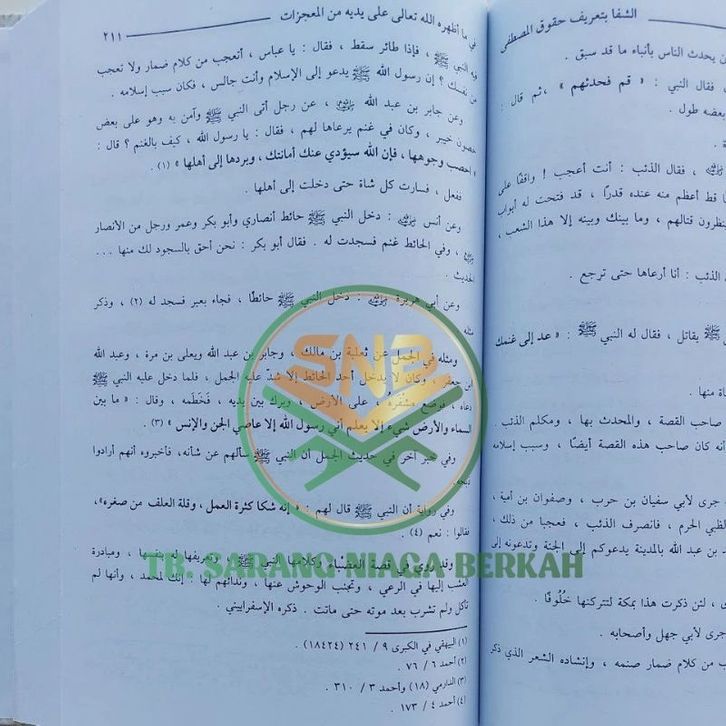 الشفا بتعريف حقوق المصطفى
ن يحدث الناس بأنباء ما قد سبق .
، فقال النبي : « قم فحدثهم » ، ثم قال :
بعضه طول .
، فقال الذئب : أنت أعجب ! واقفًا على
ا قط أعظم منه عنده قدرًا ، قد فتحت له أبواب
ينظرون قتالهم ، وما بينك وبينه إلا هذا الشعب ،
الذئب : أنا أرعاها حتى ترجع .
ﷺ يقاتل ، فقال له النبي ﷺ : « عد إلى غنمك
اة منها .
صاحب القصة ، والمحدث بها ، ومكلم الذئب .
أنه كان صاحب هذه القصة أيضًا ، وسبب إسلامه
جرى لأبي سفيان بن حرب ، وصفوان بن أمية
الظبي الحرم ، فانصرف الذئب ، فعجبا من ذلك ،
بن عبد الله بالمدينة يدعوكم إلى الجنة وتدعونه إلى
، لئن ذكرت هذا بمكة لتتركنها خُلُوفًا .
جرى لأبي جهل وأصحابه .
ب من كلام ضمار صنمه ، وإنشاده الشعر الذي ذكر
في ما أظهره الله تعالى على يديه من المعجزات
٢١١
فيه النبي ﷺ ، فإذا طائر سقط ، فقال : يا عباس ، أتعجب من كلام ضمار ولا تعجب
من نفسك ؟ إن رسول الله ﷺ يدعو إلى الإسلام وأنت جالس ، فكان سبب إسلامه .
وعن جابر بن عبد الله ، عن رجل أتى النبي ﷺ وآمن به وهو على بعض
حصون خيبر ، وكان في غنم يرعاها لهم ، فقال : يا رسول الله ، كيف بالغنم ؟ قال :
« احصب وجوهها ، فإن الله سيؤدي عنك أمانتك ، ويردها إلى أهلها » (١) .
ففعل ، فسارت كل شاة حتى دخلت إلى أهلها .
وعن أنس : دخل النبي ﷺ حائط أنصاري وأبو بكر وعمر ورجل من الأنصار
، وفي الحائط غنم فسجدت له . فقال أبو بكر : نحن أحق بالسجود لك منها ...
الحديث .
وعن أبي هريرة : دخل النبي ﷺ حائطًا ، فجاء بعير فسجد له (٢) ، وذكر
مثله
ومثله في الجمل عن ثعلبة بن مالك ، وجابر بن عبد الله ويعلى بن مرة ، وعبد الله
بن جعفر ، وكان لا يدخل أحد الحائط إلا شد عليه الجمل ، فلما دخل عليه النبي ﷺ
دعاه ، فوضع مشفره على الأرض ، وبرك بين يديه ، فخَطَمه ، وقال : « ما بين
السماء والأرض شيء إلا يعلم أني رسول الله إلا عاصي الجن والإنس » (٣) .
وفي خبر آخر في حديث الجمل أن النبي ﷺ سألهم عن شأنه، فأخبروه أنهم أرادوا
ذبحه
وفي رواية أن النبي ﷺ قال لهم : « إنه شكا كثرة العمل ، وقلة العلف من صغره»،
فقالوا : نعم (٤) .
وقد روي في قصة العضباء وكلامها النبي ﷺ وتعريفها له بنفسها ، ومبادرة
العشب إليها في الرعي ، وتجنب الوحوش عنها ، وندائهم لها : إنك لمحمد ، وأنها لم
تأكل ولم تشرب بعد موته حتى ماتت . ذكره الإسفراييني
(١) البيهقي في الكبرى ٩ / ٢٤١ (١٨٤٢٤)
(٢) أحمد ٦ / ٧٦ .
(٣) الدارمي (١٨) وأحمد ٣ / ٣١٠ .
(٤) أحمد ٤ / ١٧٣ .
SNB
TB. SARANG NIAGA BERKAH